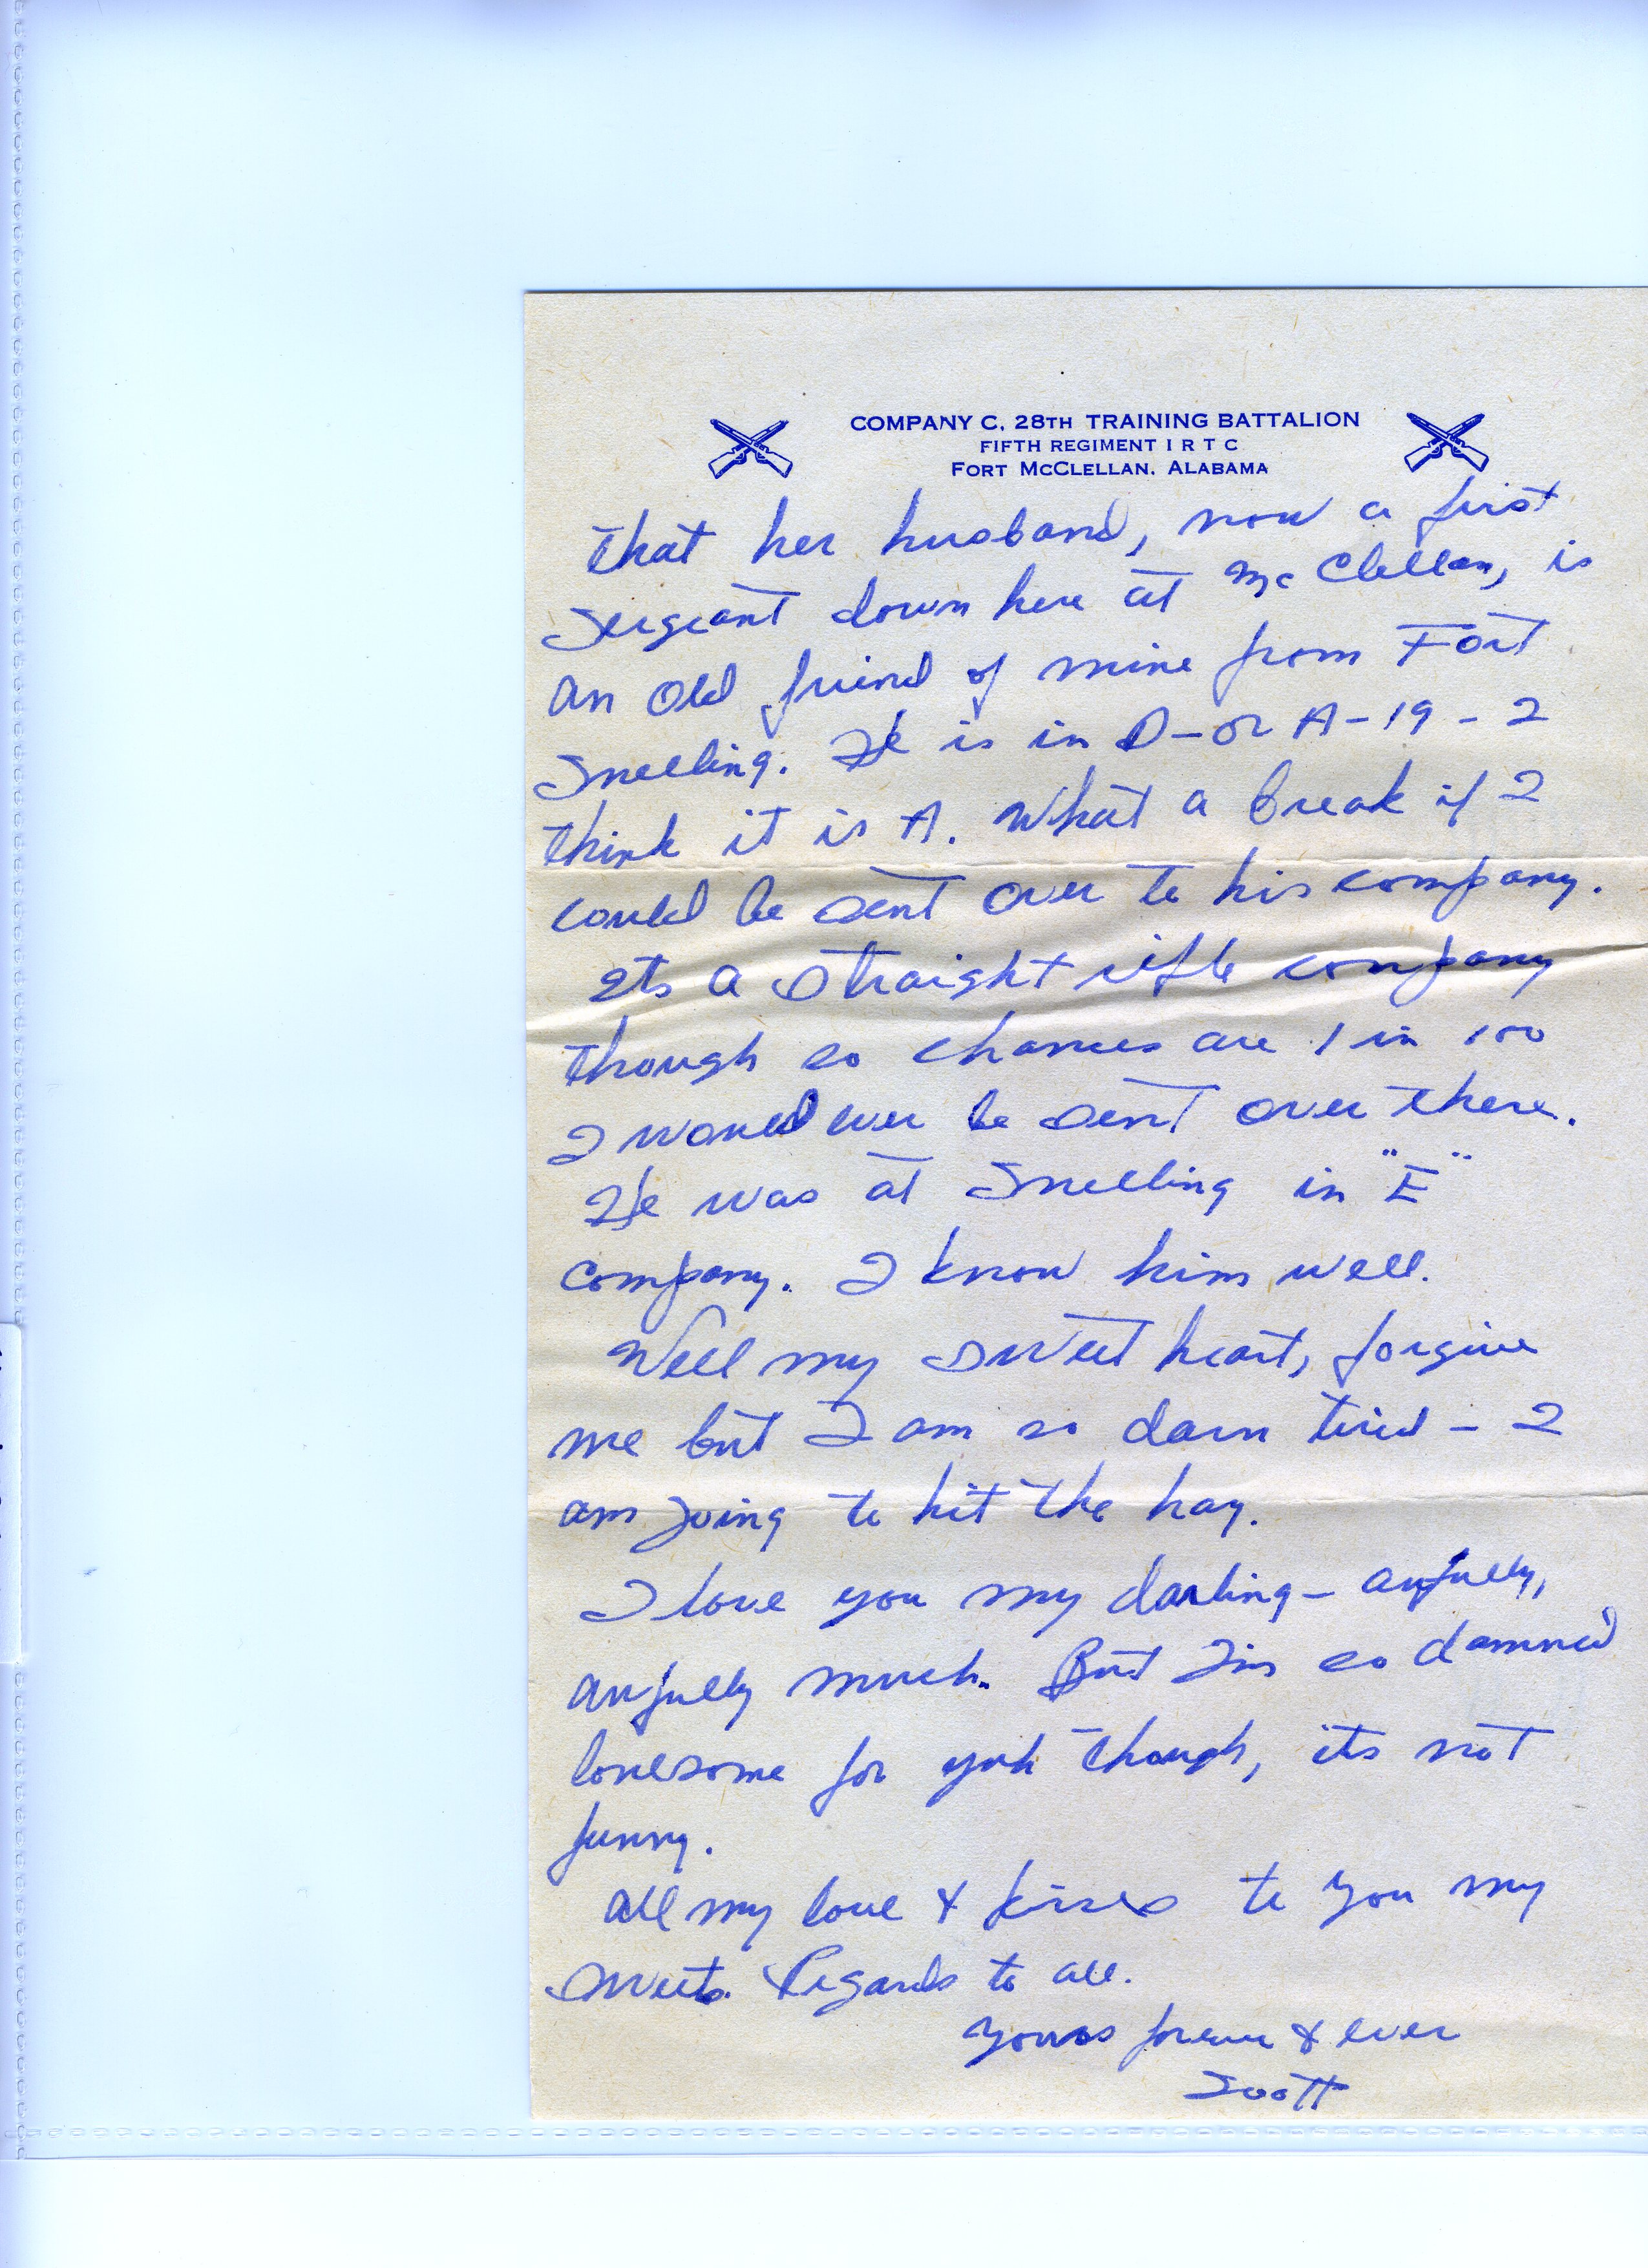 COMPANY C, 28TH TRAINING BATTALION
FIFTH REGIMENT I R T C
FORT MCCLELLAN, ALABAMA
that her husband, now a first
sergeant down here at McClellan, is
an old friend of mine from Fort
Snelling. He is in D-or A-19 - I
think it is A. What a break if I
could be sent over to his company.
Its a straight rifle company
though so chances are 1 in 100
I would ever be sent over there.
He was at Snelling in "E"
company. I know him well.
Well my sweet heart, forgive
me but I am so darn tired - I
am going to hit the hay.
I love you my darling - awfully,
awfully much. But I'm so damned
lonesome for yuh though, its not
funny.
All my love & kisses to you my
sweets. Regards to all.
Yours forever & ever
Scott